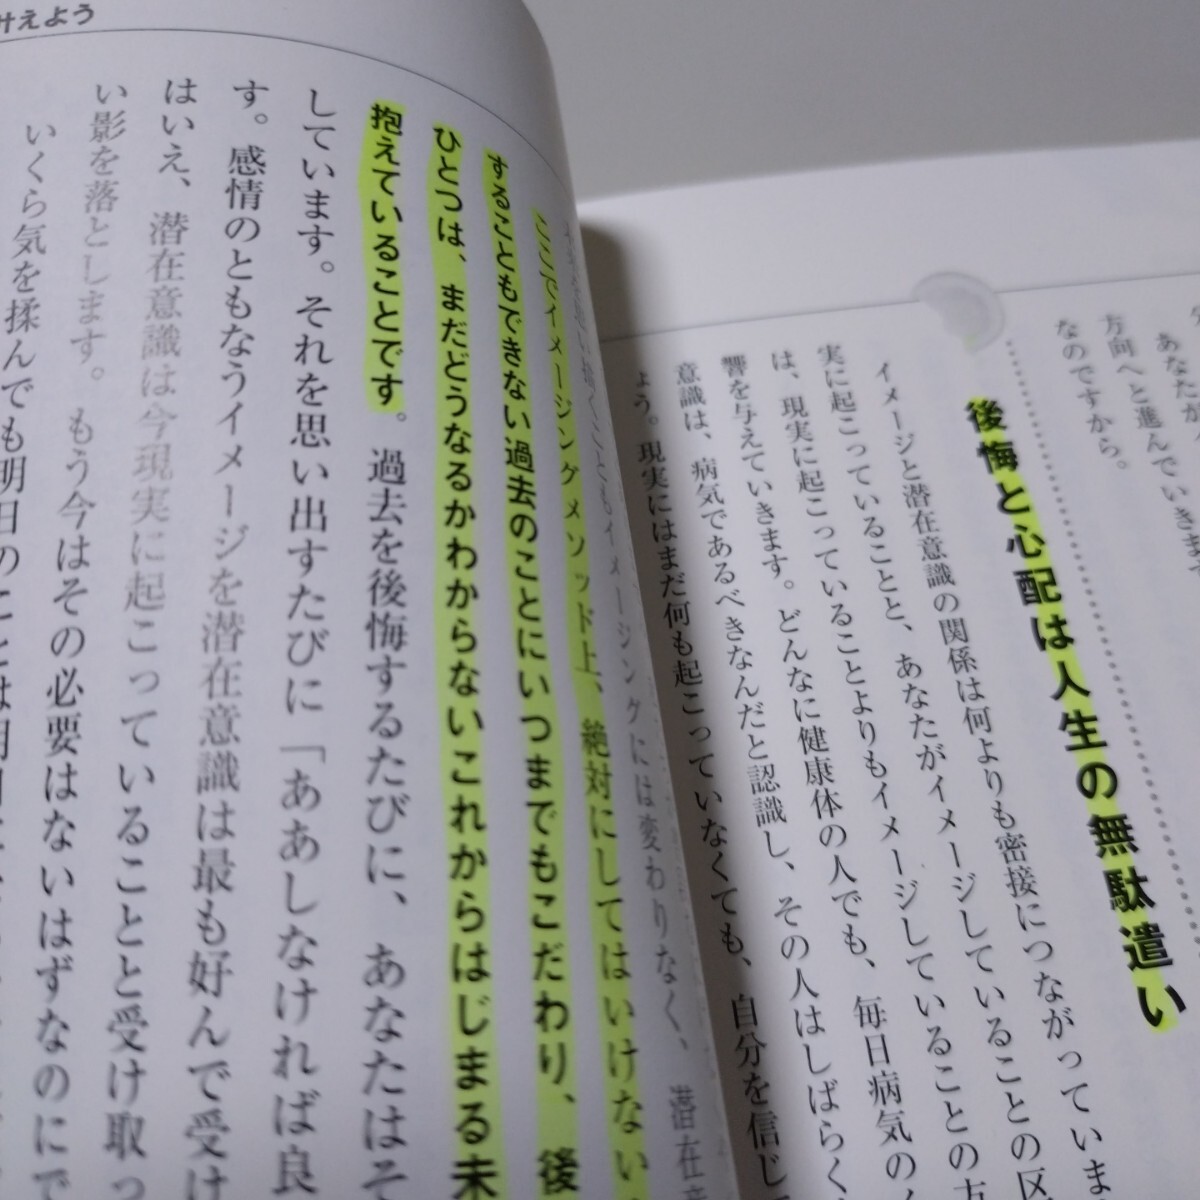 けえよう
あなたが
方向へと進んでいきます
なのですから。
後悔と心配は人生の無駄遣い
イメージと潜在意識の関係は何よりも密接につながっていま
実に起こっていることと、あなたがイメージしていることの区
は、現実に起こっていることよりもイメージしていることの方
響を与えていきます。どんなに健康体の人でも、毎日病気の
意識は、病気であるべきなんだと認識し、その人はしばらく
ょう。現実にはまだ何も起こっていなくても、自分を信じて
ことも、イメージングには変わりなく、潜在意
ここでイメージングメソッド上、絶対にしてはいけない
することもできない過去のことにいつまでもこだわり、後
ひとつは、まだどうなるかわからないこれからはじまる未
抱えていることです。過去を後悔するたびに、あなたはそ
しています。それを思い出すたびに「ああしなければ良
す。感情のともなうイメージを潜在意識は最も好んで受け
はいえ、潜在意識は今現実に起こっていることと受け取っ
い影を落とします。もう今はその必要はないはずなのに
いくら気を揉んでも明日のことは明日